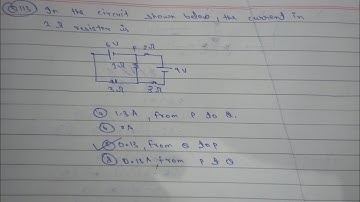 113 In the circuit shown below, the current in
resistor is
6V P 2Ω
1Ω 9V
3Ω 3Ω
a 1.3A, from P to Q.
b 0A
0.13, from Q to P
d 0.13A, from P to Q